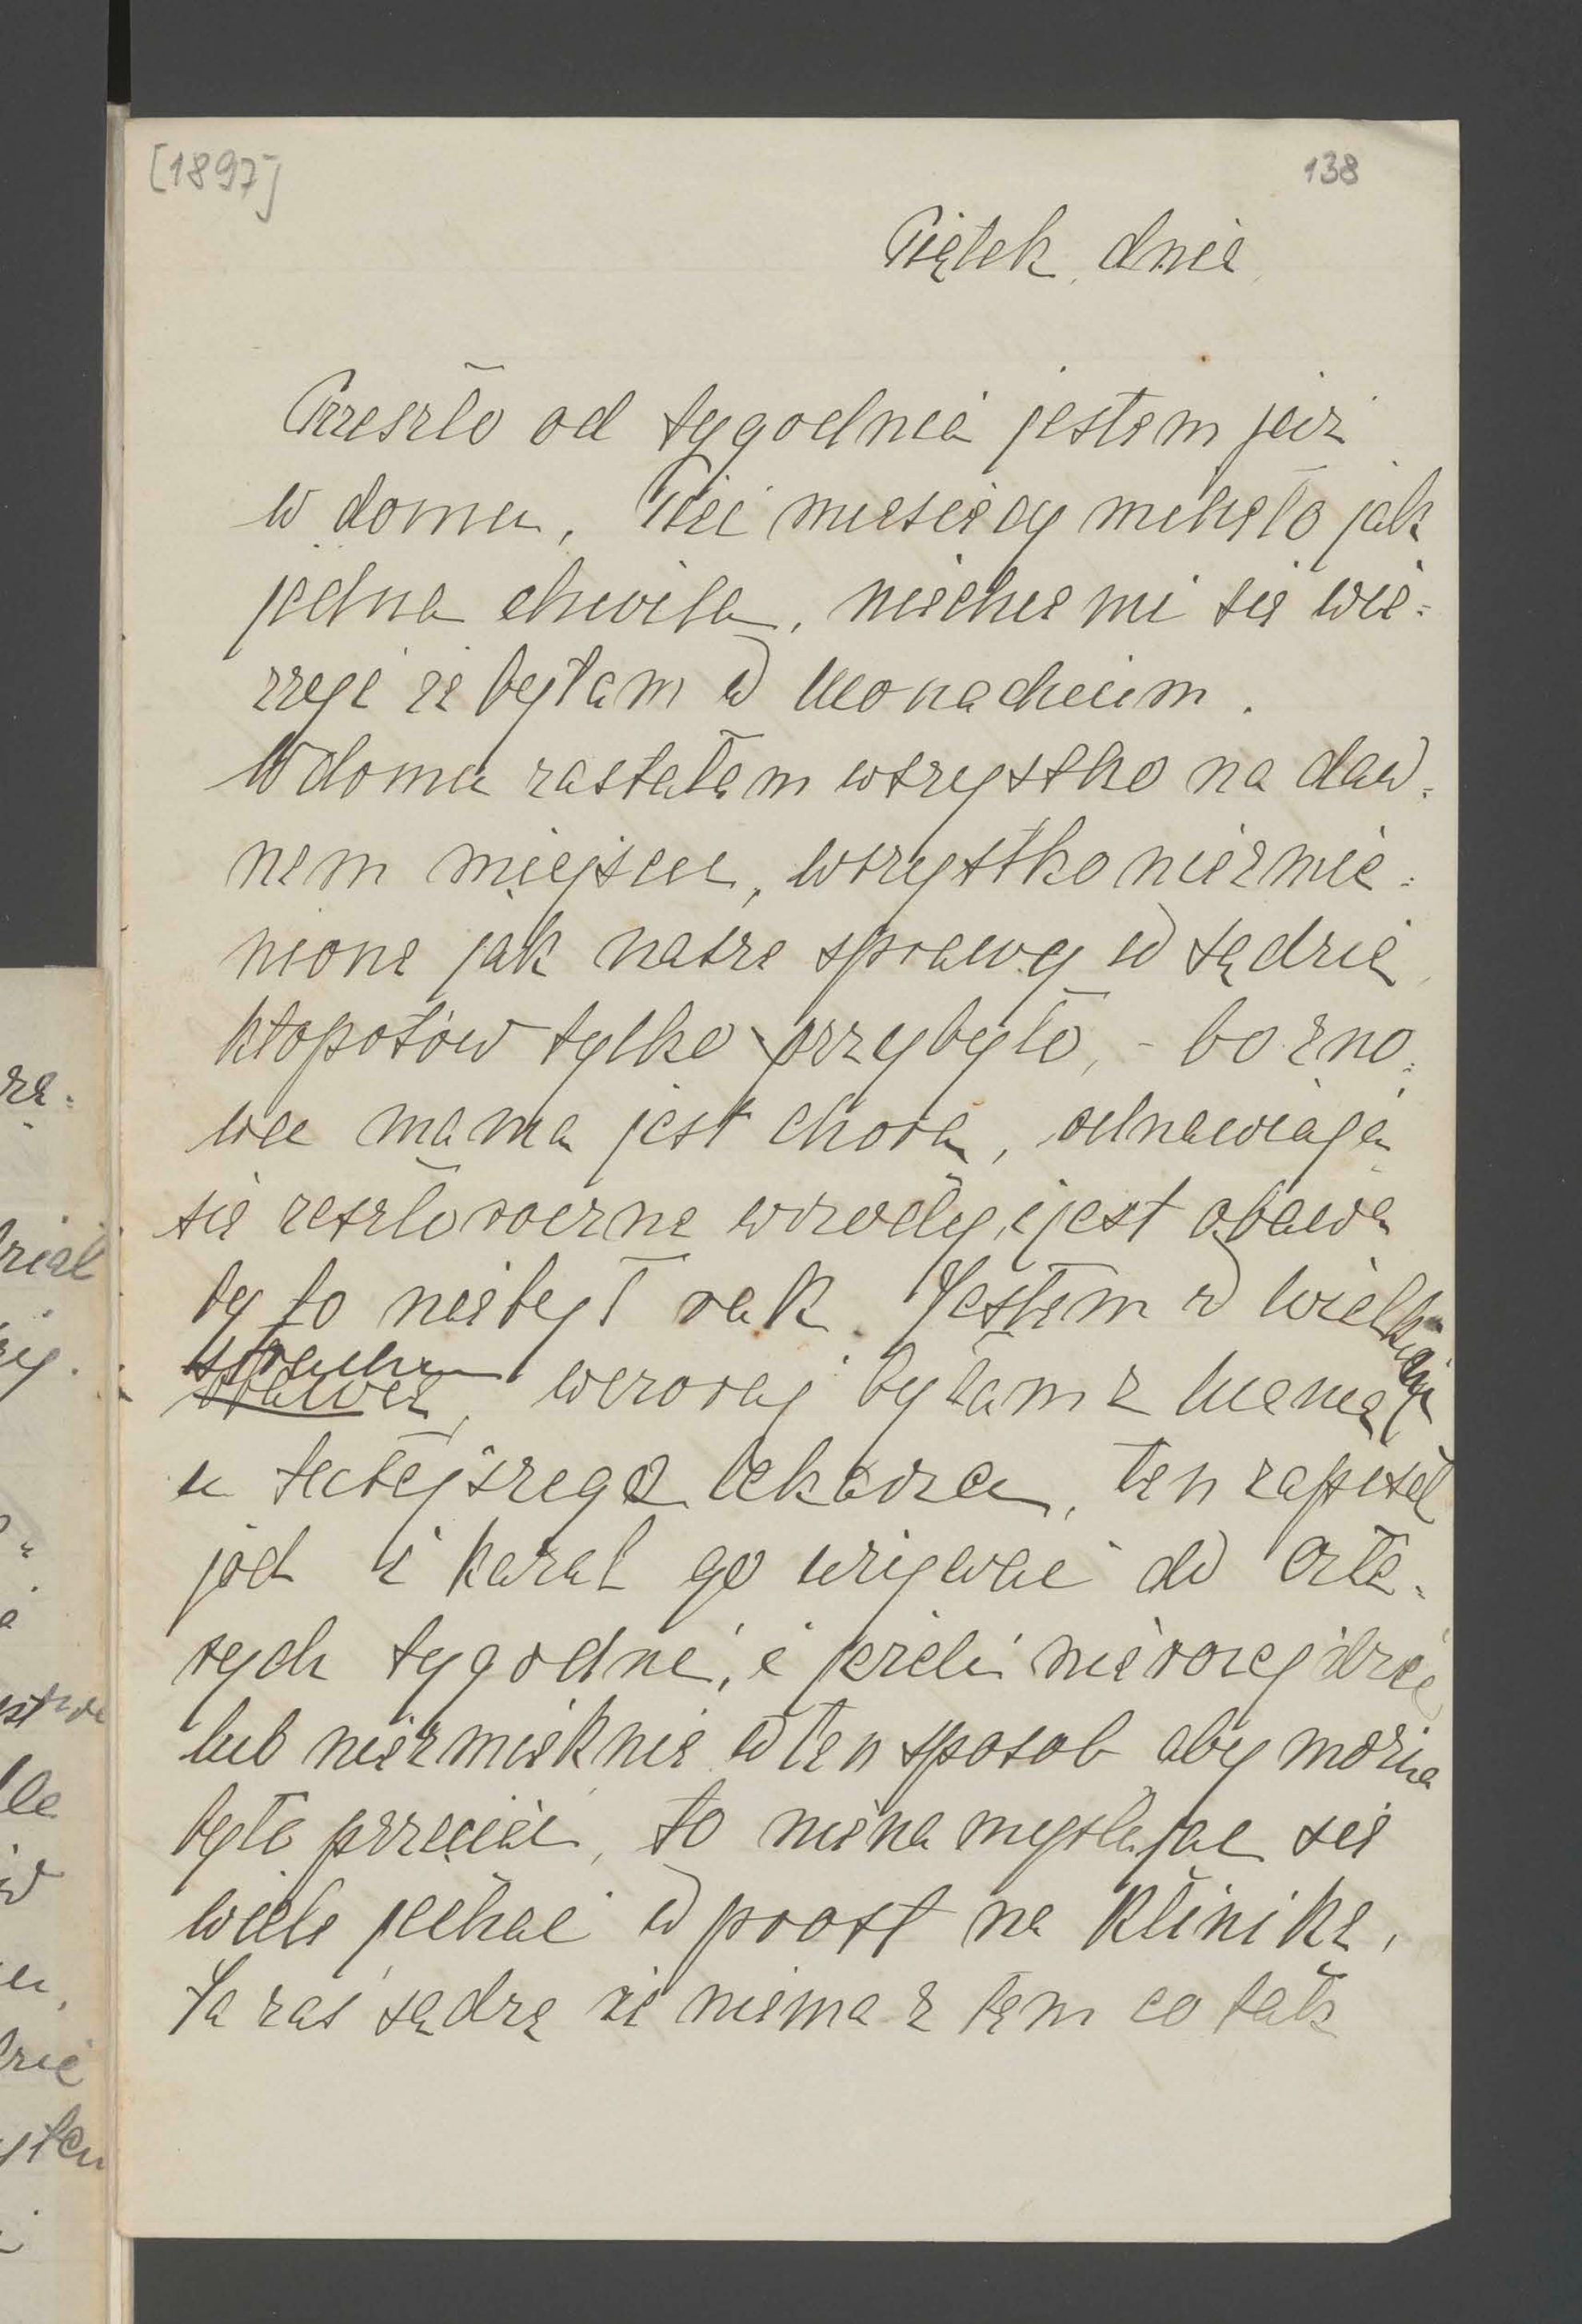 [1897]
138
Piątek, dnia
Przeszło od tygodnia jestem już
w domu, Pięć miesięcy minęło jak
jedna chwila, niechce mi się wie=
rzyć że byłam w Monachium.
W domu zastałam wszystko na daw=
nem miejscu, wszystko niezmie=
nione jak nasze sprawy w sądzie
kłopotów tylko przybyło, - bo zno=
wu mama jest chora, odnawiają
się zeszłoroczne wrzody, i jest obawa
by to niebył rak. Jestem w wielkiej
strachu
obawie, wczoraj byłam z Mamą
u tutejszego lekarza, ten zapisał
jod i kazał go używać do czte=
rych tygodni, i jeżeli nierozejdzie
lub niezmięknie w ten sposob aby można
było przeciąć, to nienamyślając się
wiele jechać w prost na klinikę,
Ja zaś sądzę że niema z tem co tak